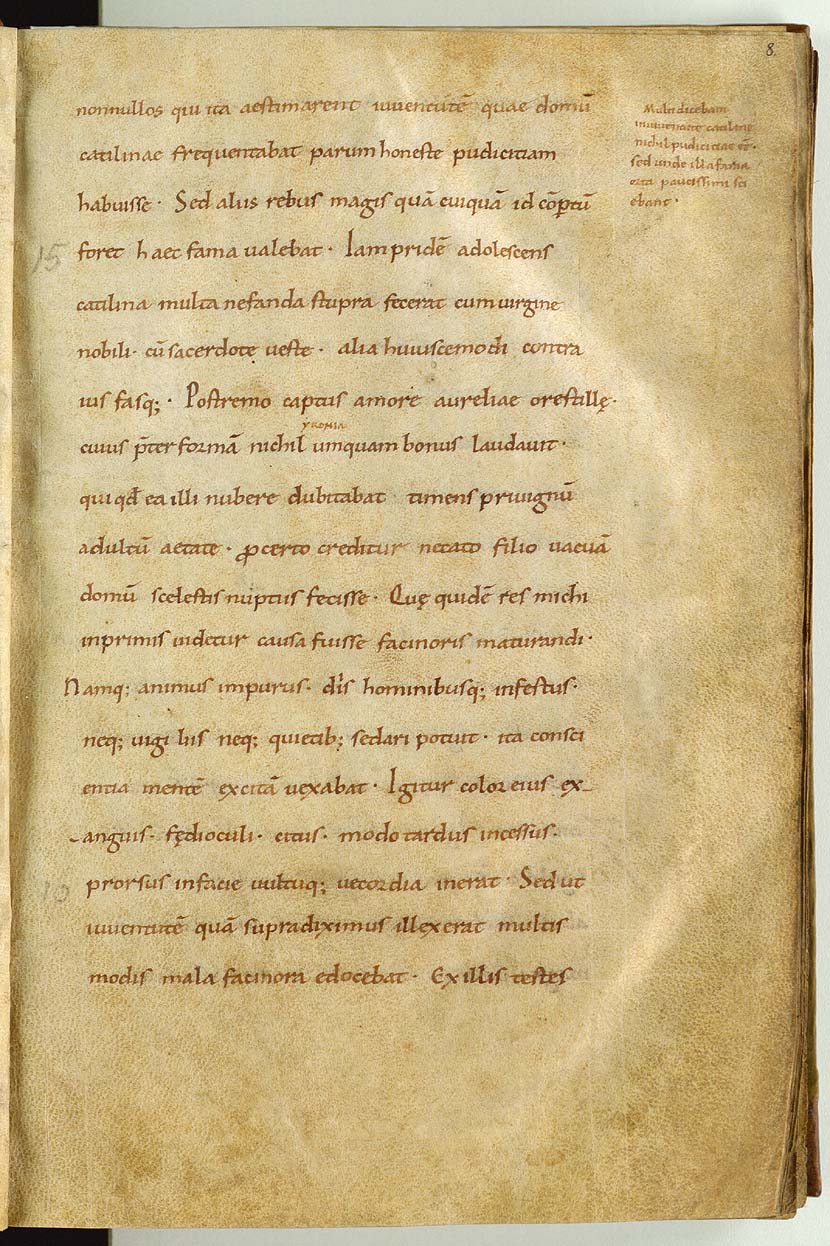 8.
nonnullos qui ita aestimarent iuventutē quae domū
catilinae frequentabat parum honeste pudicitiam
habuisse · Sed aliis rebus magis quā cuiquā id cōptū
foret haec fama valebat · Iam pridē adolescens
catilina multa nefanda stupra fecerat cum virgine
nobili · cū sacerdote veste · alia huiuscemodi contra
ius fasq; · Postremo captus amore aureliae orestillę ·
yronia
cuius p̄ter formā nichil umquam bonus laudavit ·
qui qđ ea illi nubere dubitabat timens privignū
adultū aetate · ꝓ certo creditur necato filio vacuā
domū scelestis nuptiis fecisse · Quę quidē res michi
inprimis videtur causa fuisse facinoris maturandi ·
Namq; animus impurus · dīs hominibusq; infestus ·
neq; vigiliis neq; quietib; sedari potuit · ita consci
entia mentē excitā vexabat · Igitur color eius ex-
-anguis · fędi oculi · citus · modo tardus incessus ·
prorsus in facie vultuq; vecordia inerat · Sed ut
iuventutē quā supra diximus illexerat multis
modis mala facinora edocebat · Ex illis testes
Multi dicebant
in iuventute catiline
nichil pudicitiae eē ·
sed unde illa fama
orta paucissimi sci
ebant ·
15